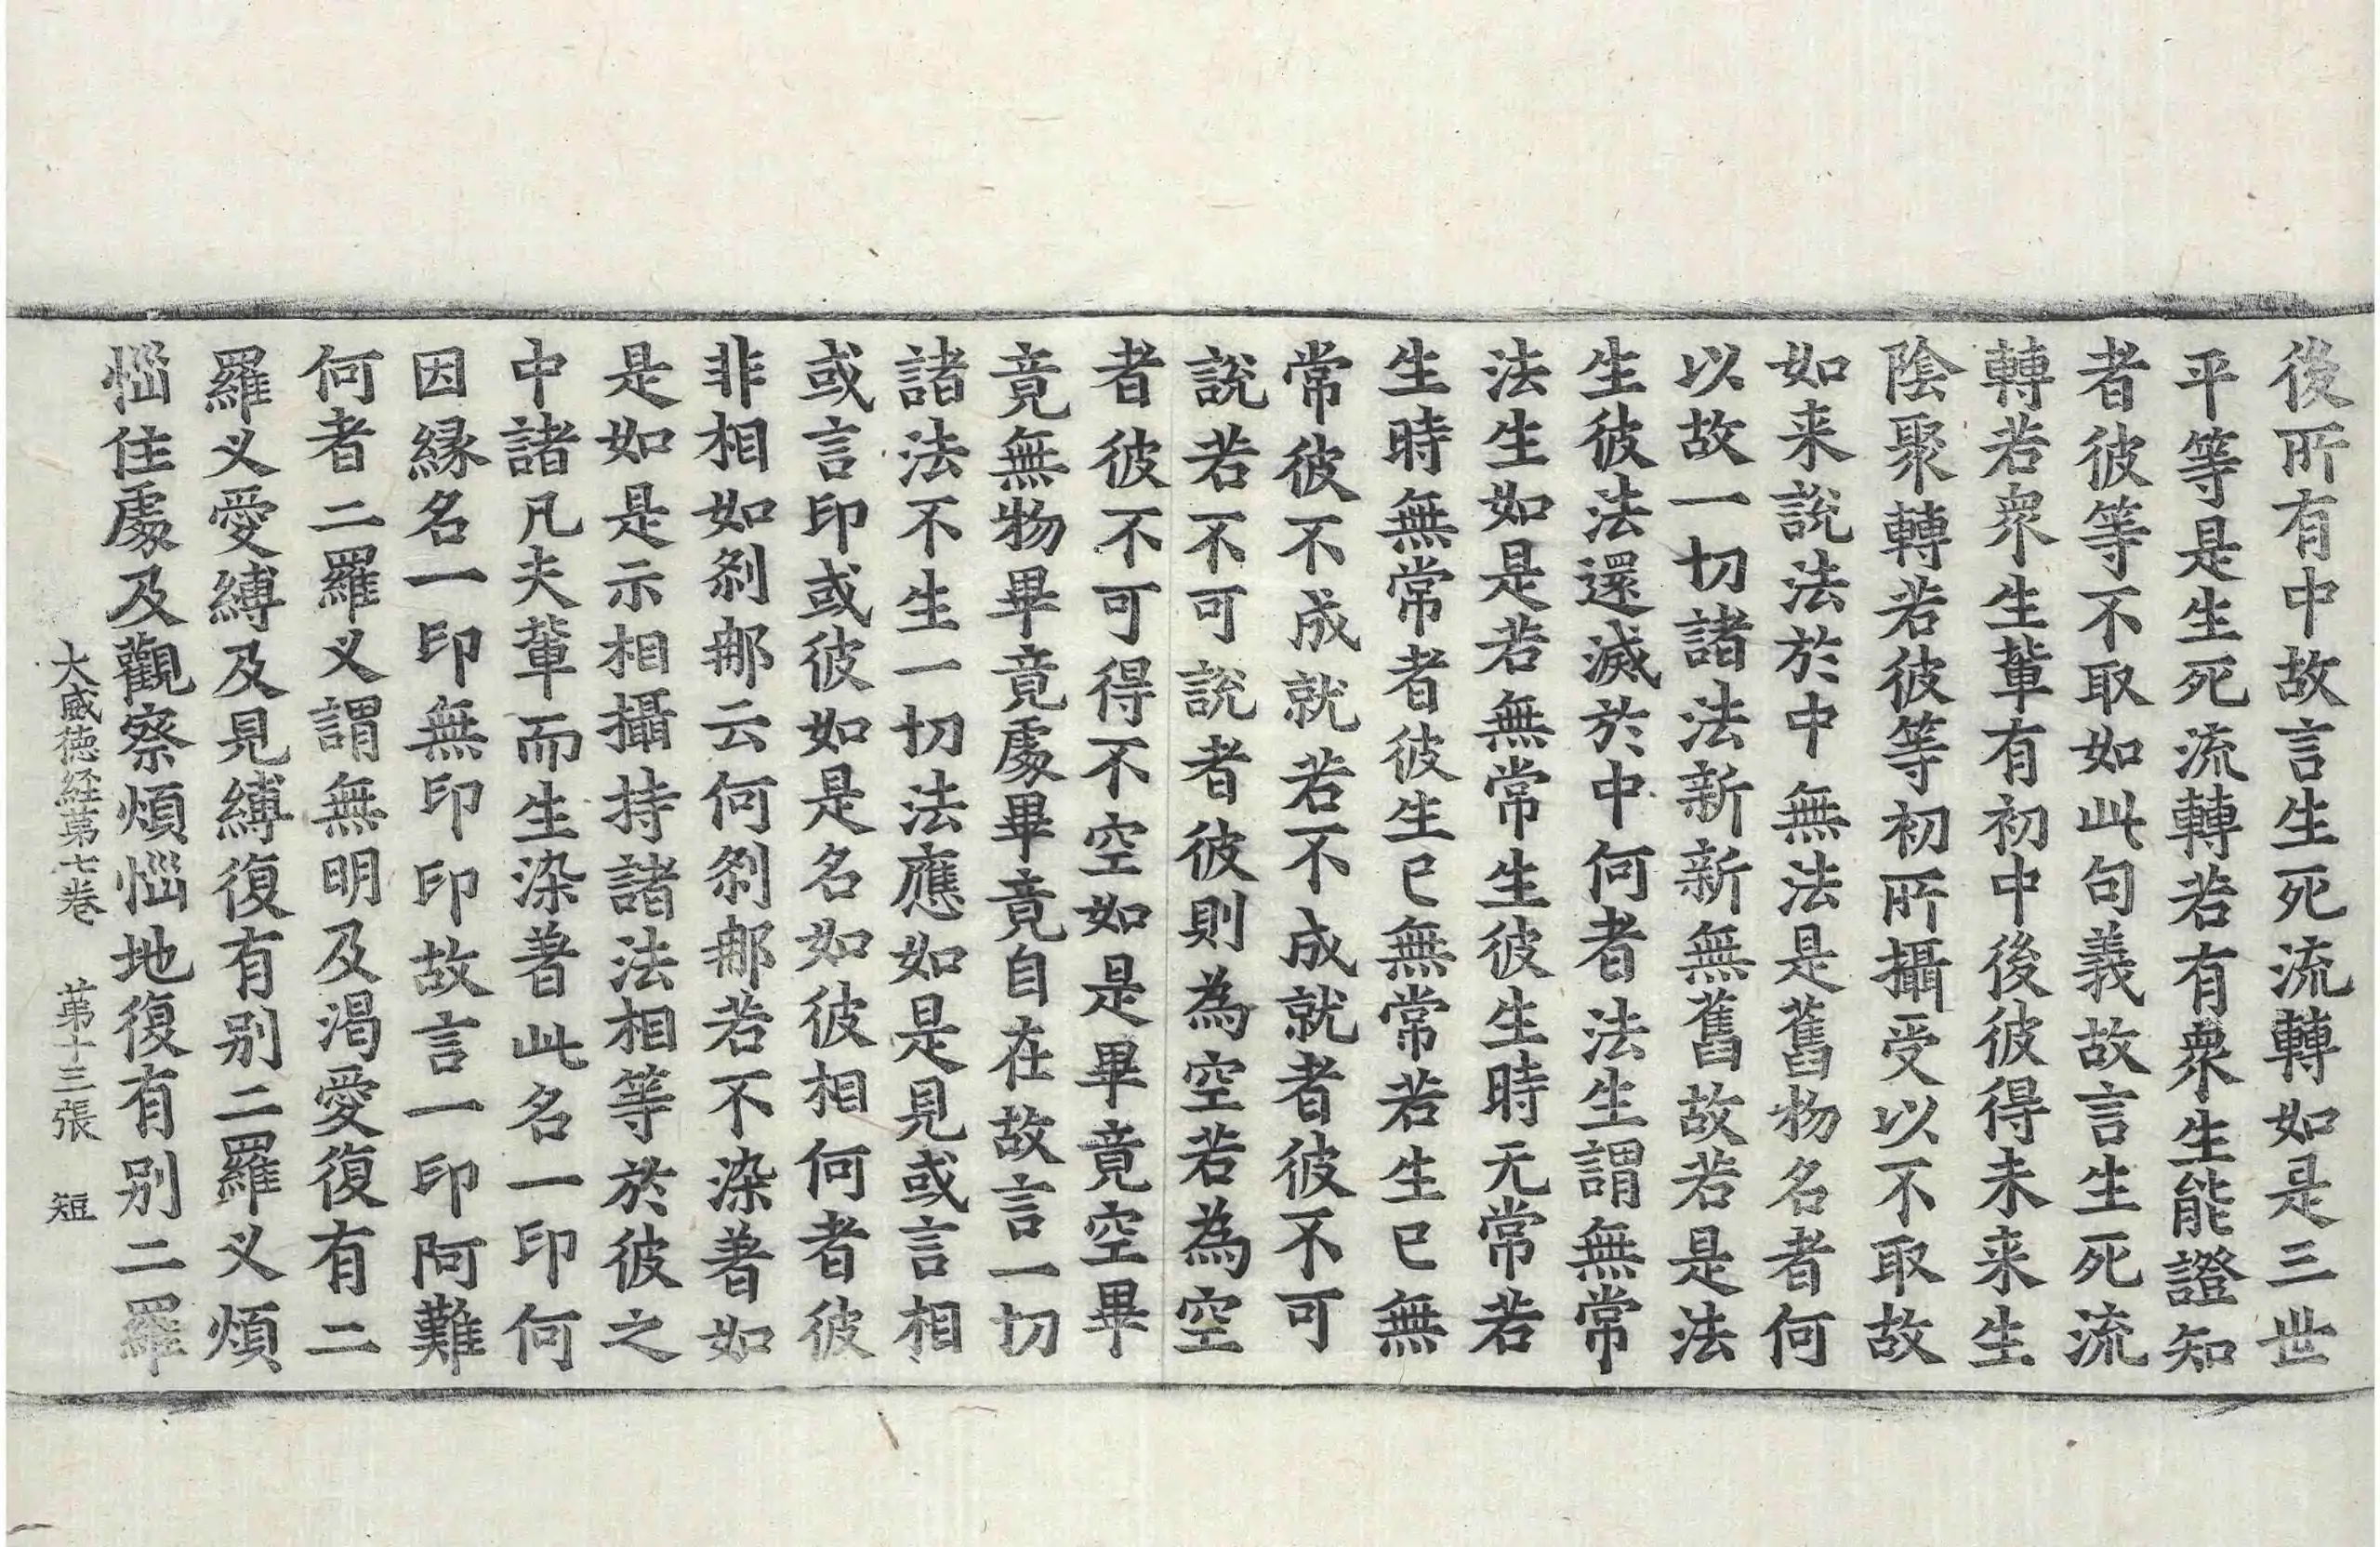 後所有中故言生死流轉如是三世
平等是生死流轉若有衆生能證知
者彼等不取如此句義故言生死流
轉若衆生軰有初中後彼得未来生
陰聚轉若彼等初所攝受以不取故
如来說法於中無法是舊物名者何
以故一切諸法新新無舊故若是法
生彼法還滅於中何者法生謂無常
法生如是若無常生彼生時无常若
生時無常者彼生已無常若生已無
常彼不成就若不成就者彼不可
說若不可說者彼則為空若為空
者彼不可得不空如是畢竟空畢
竟無物畢竟處畢竟自在故言一切
諸法不生一切法應如是見或言相
或言印或彼如是名如彼相何者彼
非相如剎那云何剎那若不染著如
是如是示相攝持諸法相等於彼之
中諸凡夫軰而生染著此名一印何
因縁名一印無印印故言一印阿難
何者二羅义謂無明及渴愛復有二
羅义愛縛及見縛復有别二羅义煩
惱住處及觀察煩惱地復有别二羅
大威徳経第七卷 第十三張 短